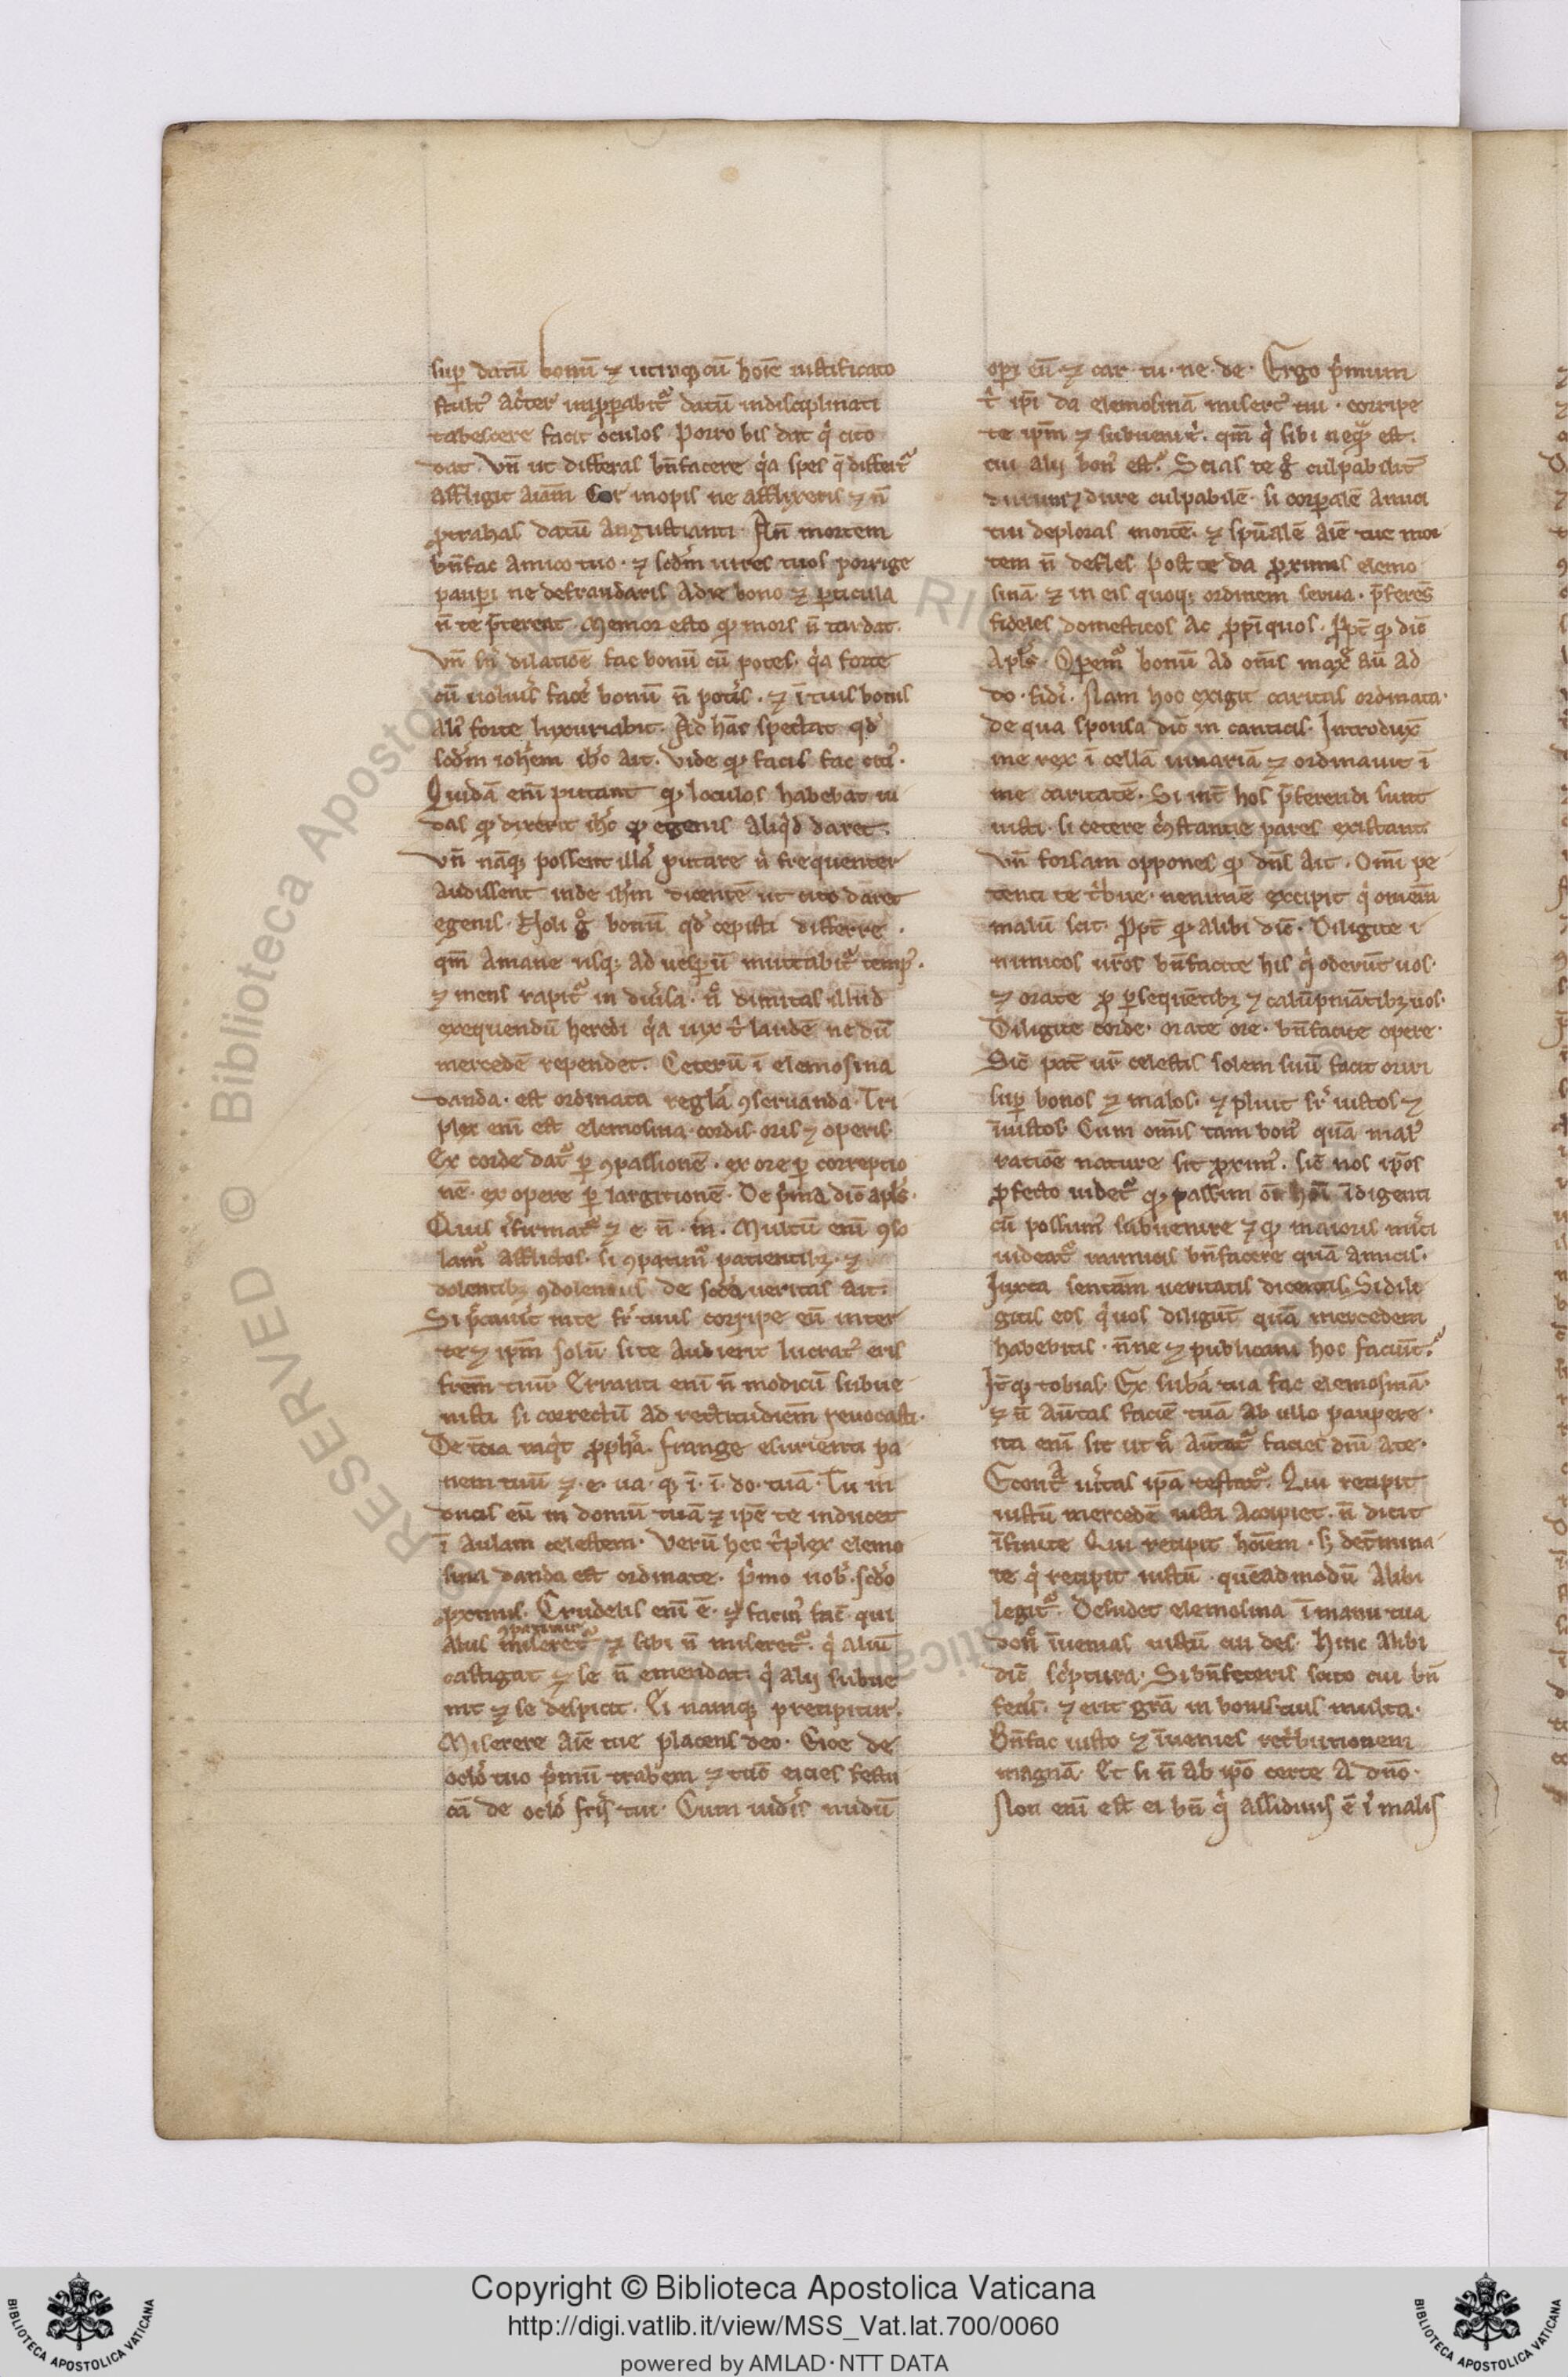 sup datū bonū ⁊ utrūq; cū hoīe iustificato
stult᷒ acͥter inpropabit᷑ datū indisciplinati
tabescere facit oculos. Porro bis dat qͥ cito
dat. Vn̄ ut differas bn̄facere qͥa spes q̄ differt᷑
affligit aīam. Cor inopis ne afflixeris ⁊ n̄
ꝓtrahas datū angustianti. An̄ mortem
bn̄fac amico tuo. ⁊ scd̄m uires tuas porrige
paupi ne defrauderis a die bono ⁊ ꝑticula
n̄ te p̄tereat. Memor esto qꝫ mors n̄ tardat.
Vn̄ sn̄ dilatiōe fac bonū cū potes. qͥa forte
cū uoluis facē bonū n̄ potis. ⁊ ī tuis bonis
ali᷒ forte luxuriabit. Ad hāc spectat qd̓
scd̄m ioh̄em ih̄c ait. Vide qꝫ facis fac citi᷒.
Quidā enī putant qꝫ loculos habebat iu
das qꝫ dixerit ih̄c qꝫ egenis aliqͥd daret.
Vn̄ nāqꝫ possent illā putare n̄ frequenter
audissent inde ih̄m dicentē ut cito daret
egenis. Noli gͦ bonū qd̓ cepisti differre.
qm̄ a mane usqꝫ ad uesperū mutabit᷑ temp᷒.
⁊ mens rapit᷑ in diūsa. nͦ dimitas illud
exequendū heredi qͥa uix tͥ laudē nedū
mercedē rependet. Ceterū ī elemosina
danda. est ordinata regla ꝯseruanda. Tri
plex enī est elemosina. cordis. oris ⁊ operis.
Ex corde dat᷑ ꝑ ꝯpassionē. ex ore ꝑ correptio
nē. ex opere ꝑ largitionē. De pͥma dic̄ apl̄s.
Quis īfirmat᷑ ⁊ e. n̄. in. Multū enī ꝯso
lam᷒ afflictos. si ꝯpatim᷒ patientibꝫ. ⁊
dolentibꝫ ꝯdolemus. De scd̄a ueritas ait.
Si pͨcauīt in te fr̄ tuus corripe eū inter
te ⁊ ipm̄ solū. si te audierit lucrat᷒ eris
frēm tuū. Erranti enī n̄ modicū subue
nisti si correctū ad rectitudinem reuocasti.
De t̄cia inqͥt ꝓph̄a. Frange esurienti pa
nem tuū ⁊. e. ua. qꝫ ī. ī. do. tuā. Tu in
ducis eū in domū tuā ⁊ ipē te inducet
ī aulam celestem. Verū hec tͥplex elemo
sina danda est ordinate. pͥmo nob᷒. scd̄o
ꝓximis. Crudelis enī ē. ⁊ facin᷒ fac̄ qui
ꝯpatitur
aliis miseret᷑ ⁊ sibi n̄ miseret᷑. qͥ aliū
castigat ⁊ se n̄ emendat. qͥ alij subue
nit ⁊ se despicit. Ei namqꝫ precipitur.
Miserere aīe tue placens deo. Eice de
ocl̄o tuo pͥmū trabem ⁊ tūc eicies festu
cā de ocl̄o fr̄is tui. Cum uidis nudū
opi eū. ⁊ car. tu. ne. de. Ergo pͥmum
tͥ ipi da elemosinā miserere tui. corripe
te ipm̄ ⁊ subueni tͥ. qm̄ qͥ sibi neq̄ est.
cui alij bon᷒ est. Scias te gͦ culpabilit̄
durum ⁊ dure culpabilē. si corporalē amici
tui deploras mortē. ⁊ spūalē aīe tue mor
tem n̄ defles. Post te da ꝓximis elemo
sinā. ⁊ in eis quoqꝫ ordinem serua. p̄feres
fideles domesticos ac ꝓpīquos. Ppt̄ qꝫ dic̄
apl̄s. Operem᷒ bonū ad om̄s max̄ aū ad
do. fidi. Nam hoc exigit caritas ordinata.
de qua sponsa dic̄ in canticis. Introdux̄
me rex ī cellā uinariā ⁊ ordinauit ī
me caritatē. Si int̄ hos p̄ferendi sunt
iusti. si cetere cͥcstantie pares existant.
Vn̄ forsam oppones qꝫ dn̄s ait. Omī pe
tenti te tͥbue. neminē excipit qͥ omnēm
malū scit. Ppt̄ qꝫ alibi dic̄. Diligite i
nimicos ur̄os bn̄facite his qͥ oderūt uos.
⁊ orate ꝓ ꝑsequētibꝫ ⁊ calūpniātibꝫ uos.
Diligite corde. orate ore. bn̄facite opere.
Sic̄ pat̄ ur̄ celestis solem suū facit oriri
sup bonos ⁊ malos. ⁊ pluit sr̄ iustos ⁊
īiustos. Cum om̄is tam bon᷒ quā mal᷒
ratiōe nature sit ꝓxim᷒. sic̄ nos ip̄os
ꝓfecto uidet᷑ qꝫ passim om̄i hoī īdigenti
cū possum᷒ subuenire ⁊ qꝫ maioris mͥti
uideat᷑ inimicis bn̄facere quā amicis.
Iuxta sentām ueritatis dicentis. Si dili
gitis eos qͥ uos diligūt quā mercedem
habebitis. n̄ne ⁊ publicani hoc faciūt.
It̄ qꝫ tobias. Ex subā tua fac elemosinā.
⁊ n̄ aūtas faciē tuā ab ullo paupere.
ita enī fit ut n̄ aūtat᷑ facies dn̄i a te.
Econtͣ uͥtas ipā testat᷑. Qui recipit
iustū mercedē iusti accipiet. n̄ dicit
īfinite qui recipit hoīem. sꝫ det̄mina
te qͥ recipit iustū. quēadmodū alibi
legit᷑. Desudet elemosina ī manu tua
donͨ īuenias iustū cui des. Hinc alibi
dic̄ scͥptura. Si bn̄feceris scito cui bn̄
fecis. ⁊ erit grā in bonis tuis multa.
Bn̄fac iusto ⁊ īuenies retͥbutionem
magnā. Et si n̄ ab ipō certe a dn̄o.
Non enī est ei bn̄ qͥ assiduus ē ī malis
© Biblioteca Apostolica Vaticana
RESERVED
Copyright © Biblioteca Apostolica Vaticana
http://digi.vatlib.it/view/MSS_Vat.lat.700/0060
powered by AMLAD · NTT DATA
BIBLIOTECA APOSTOLICA VATICANA
BIBLIOTECA APOSTOLICA VATICANA